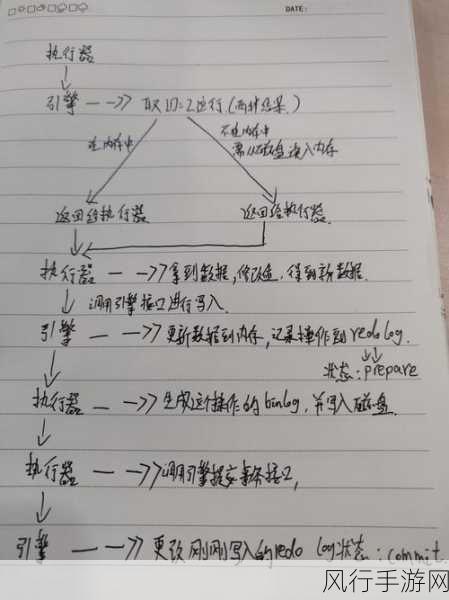 DATE:
执行器
引擎 ——>> 取ID=2这行(两种结果.)
在内存中
不在内存中
需从磁盘读入内存
返回给执行器
返回给执行器
执行器 ——>> 拿到数据,修改造,得到新数据.
调用引擎接口进行写入.
引擎 ——>> 更新数据到内存,记录操作到redo log.
状态:prepare
执行器 ——>> 生成这个操作的binlog,并写入磁盘.
执行器 ——>> 调用引擎提交事务接口,
引擎 ——>> 更改刚刚写入的redo log状态:commit.
风行手游网